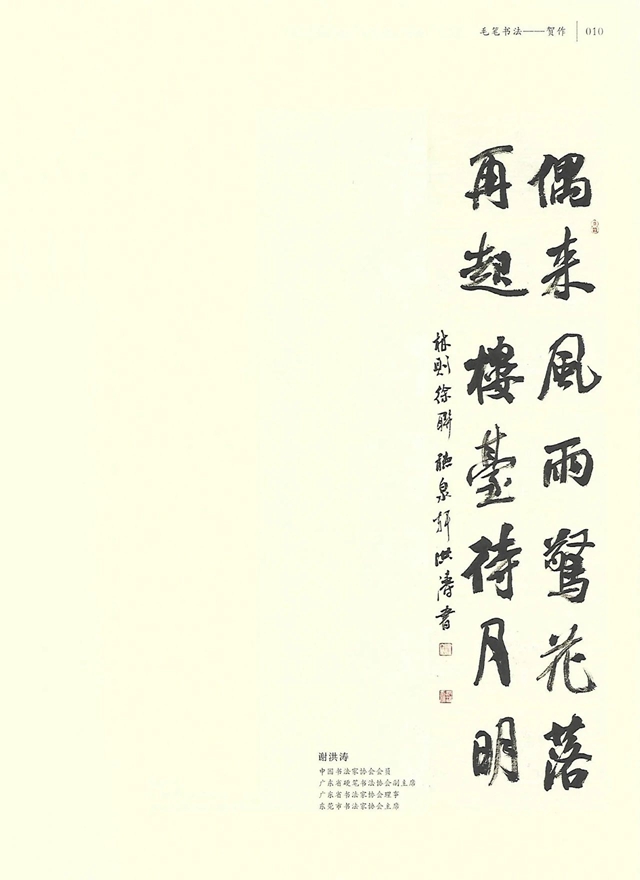 毛笔书法——贺作 010
偶来風雨驚花落
再起樓臺待月明
林则徐聯 聽泉軒洪濤書
谢洪涛
中国书法家协会会员
广东省硬笔书法协会副主席
广东省书法家协会理事
东莞市书法家协会主席